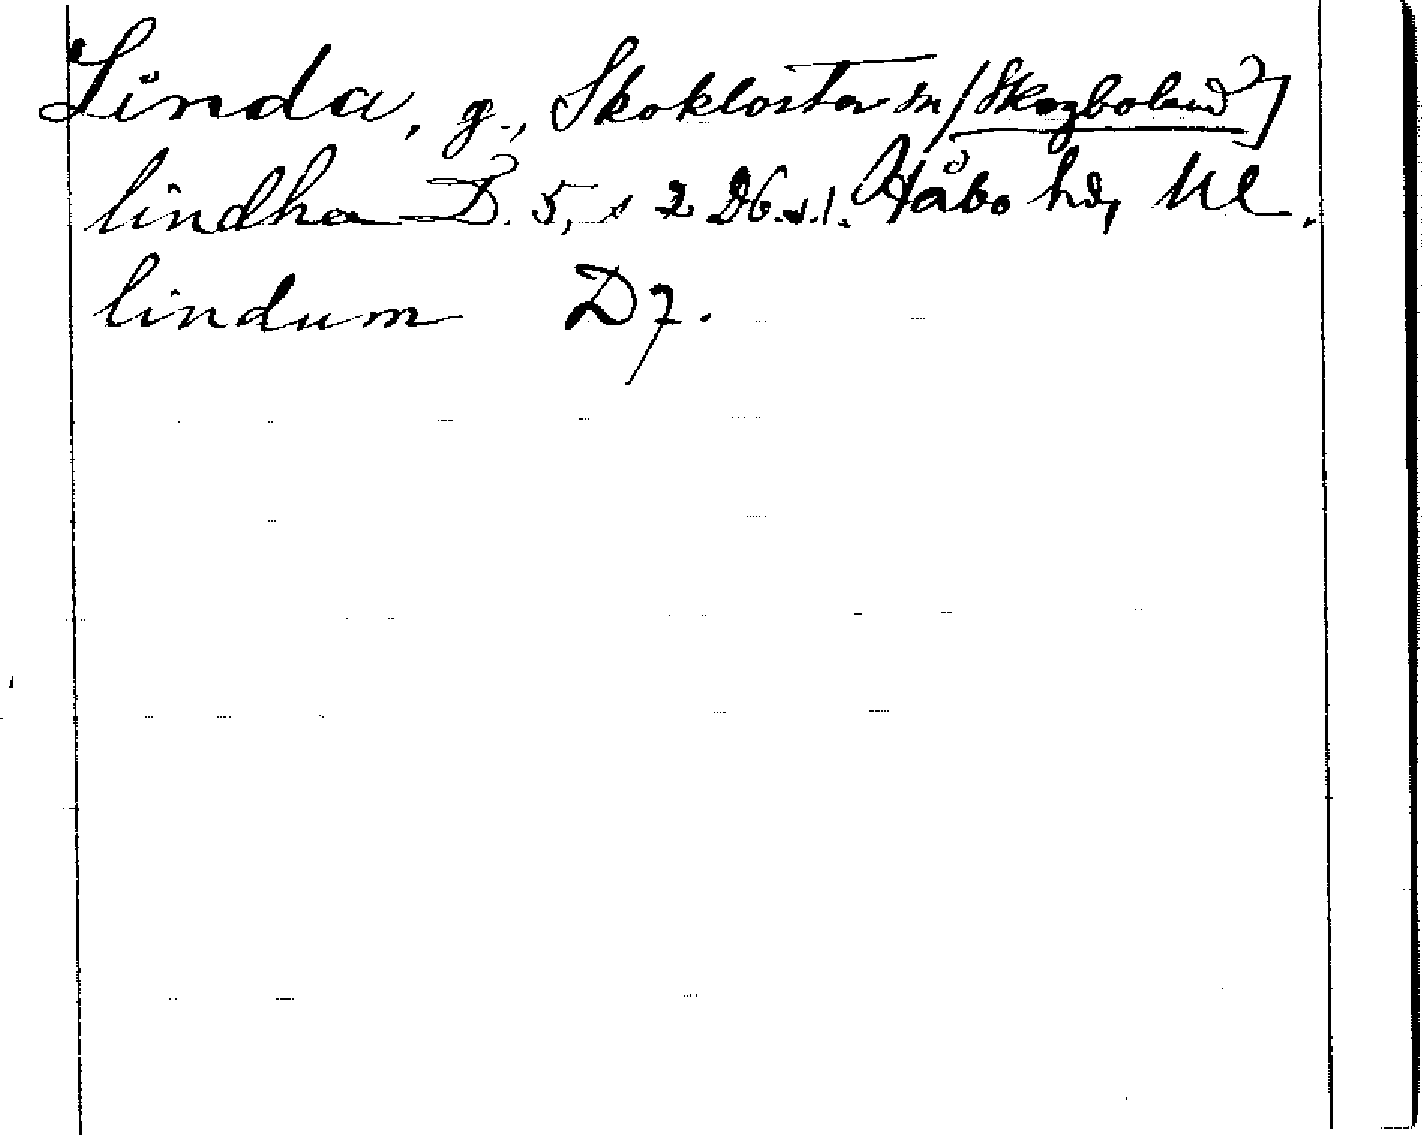 Linda, g., Skokloster sn [Skogbolund]
lindha D. 5, s 2 D6. s.1. Håbo hd, Ul.
lindum D7.